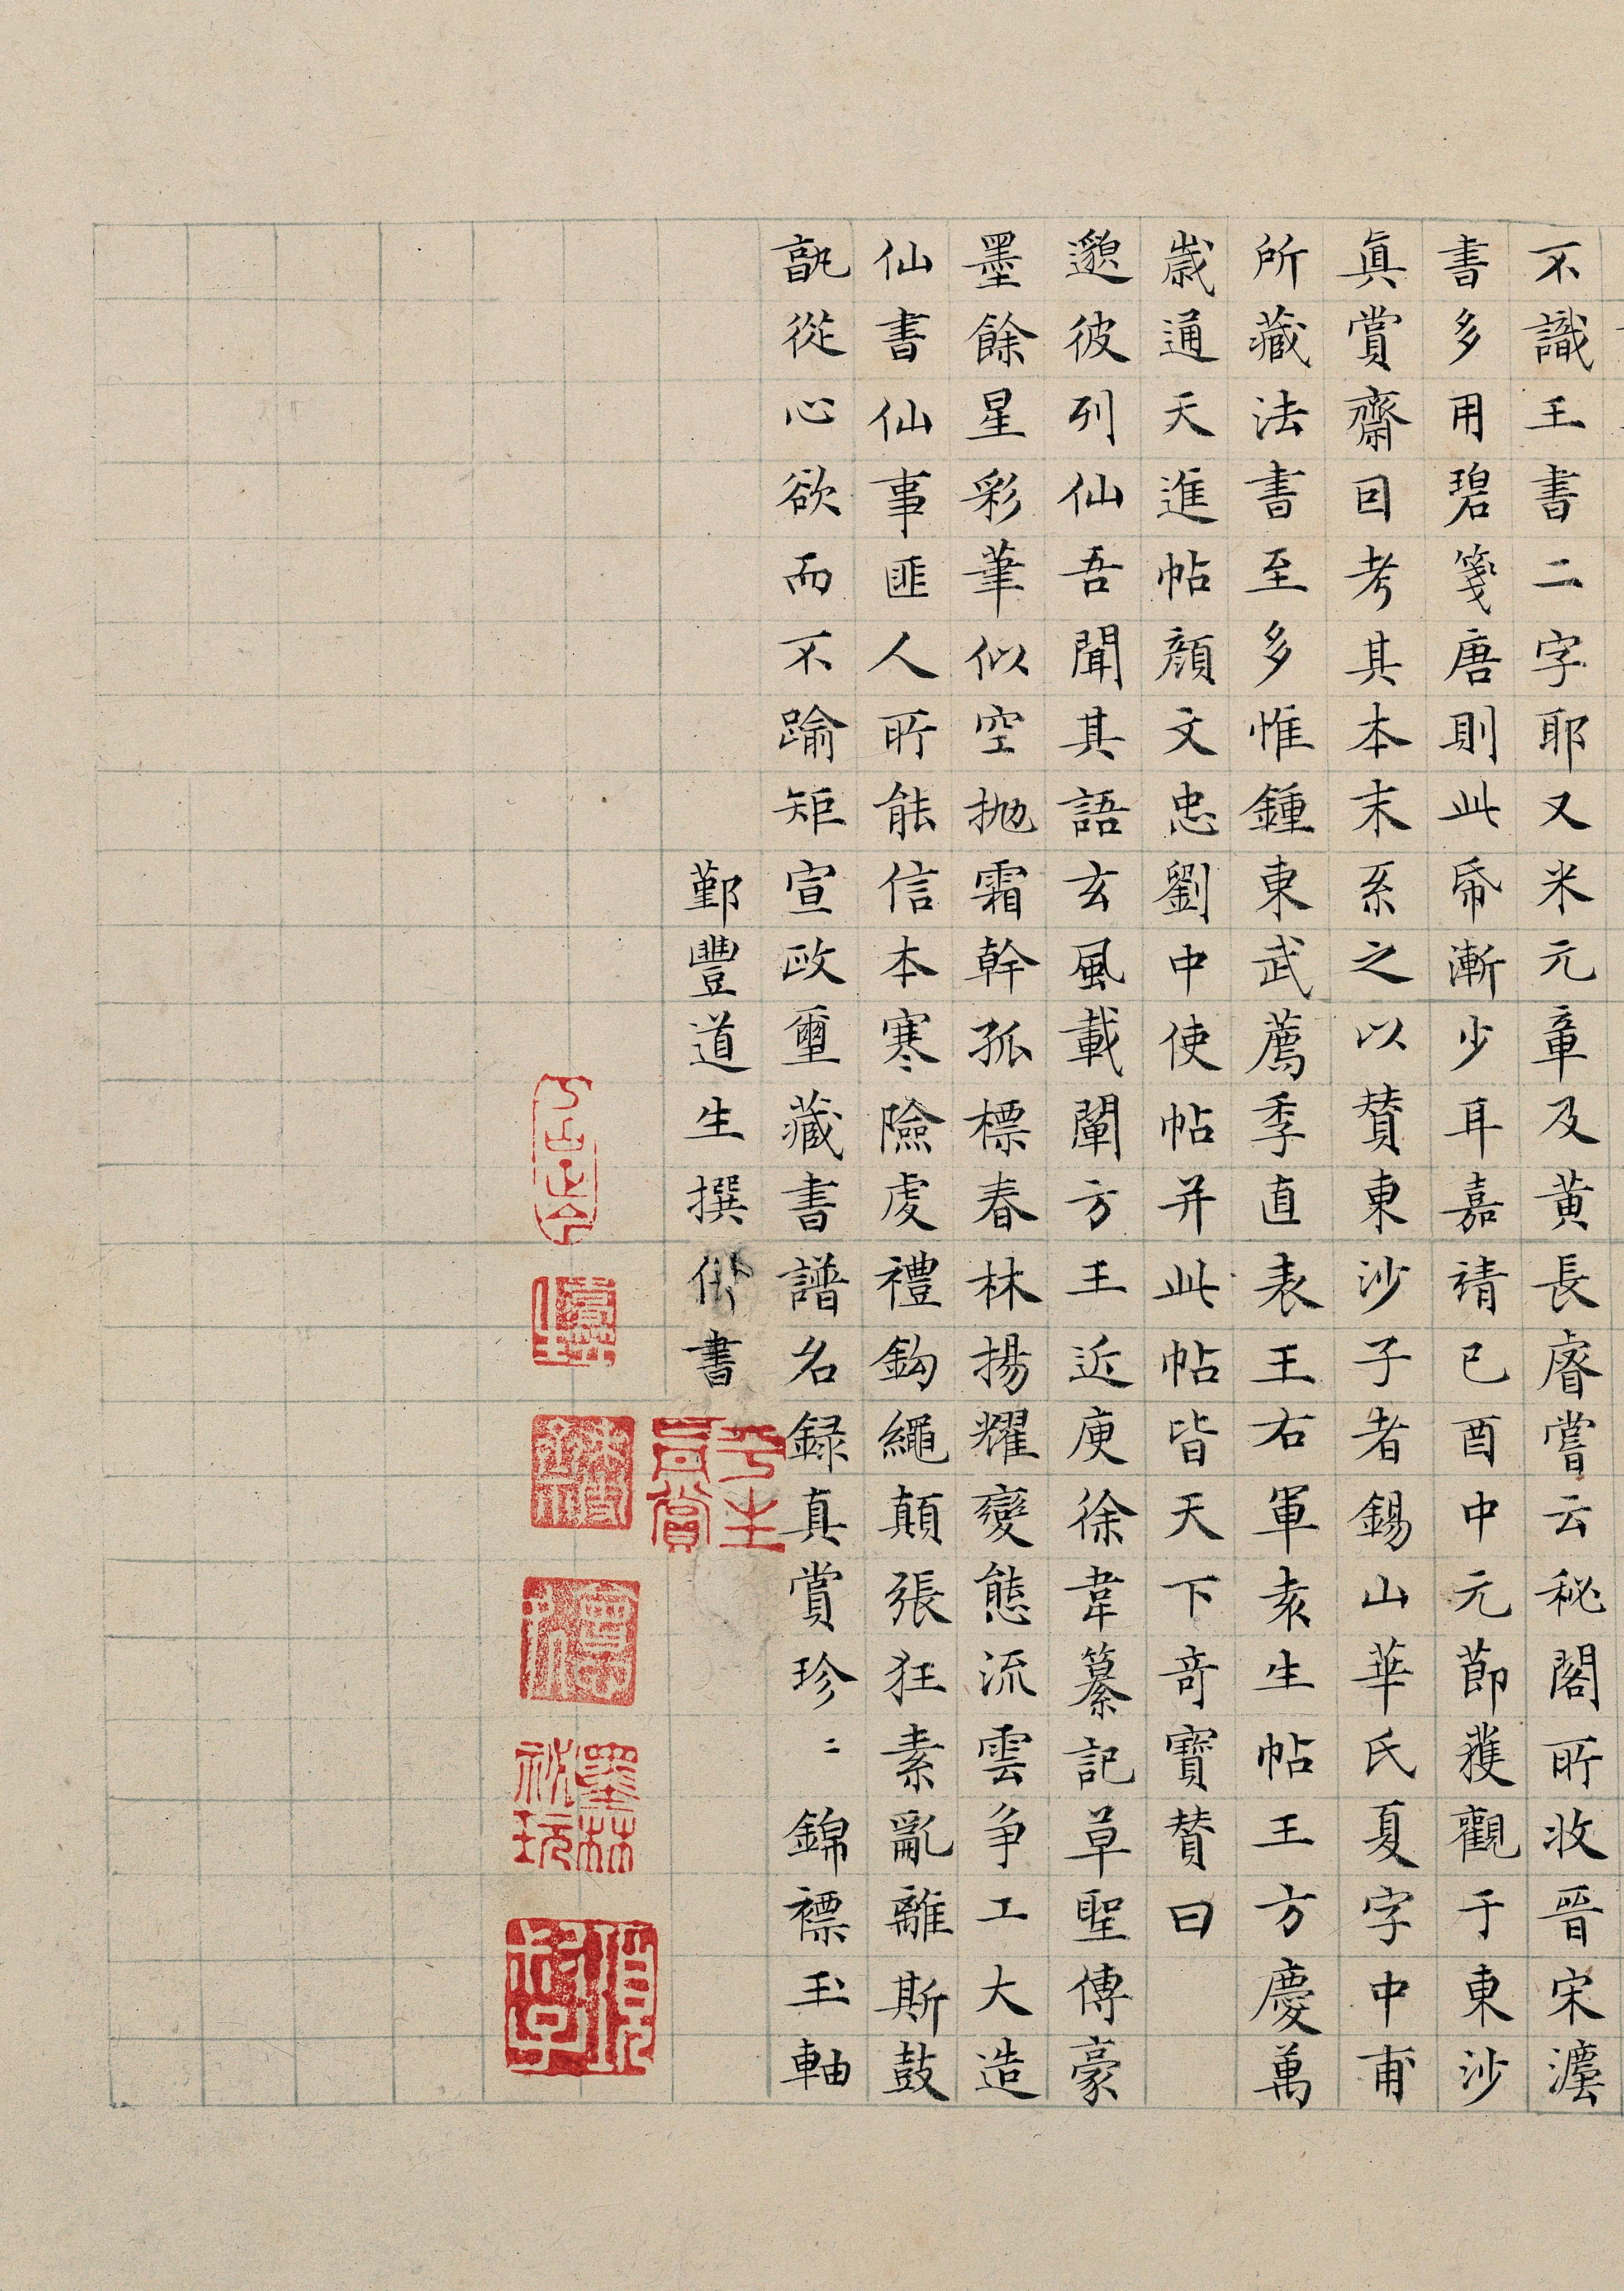 不識王書二字耶又米元章及黄長睿嘗云秘閣所收晉宋灋
書多用碧箋唐則此帋漸少耳嘉靖己酉中元莭獲觀于東沙
眞賞齋因考其本末系之以賛東沙子者錫山華氏夏字中甫
所藏法書至多惟鍾東武薦季直表王右軍袁生帖王方慶萬
歳通天進帖顔文忠劉中使帖并此帖皆天下竒寶賛曰
邈彼列仙吾聞其語玄風載闡方王近庾徐韋纂記草聖傅豪
墨餘星彩筆似空抛霜幹孤標春林揚耀變態流雲争工大造
仙書仙事匪人所能信本寒險虔禮鈎繩顛張狂素亂離斯鼓
孰從心欲而不踰矩宣政璽藏書譜名録真賞珍〻錦褾玉軸
鄞豐道生撰併書
平生真賞
墨林祕玩